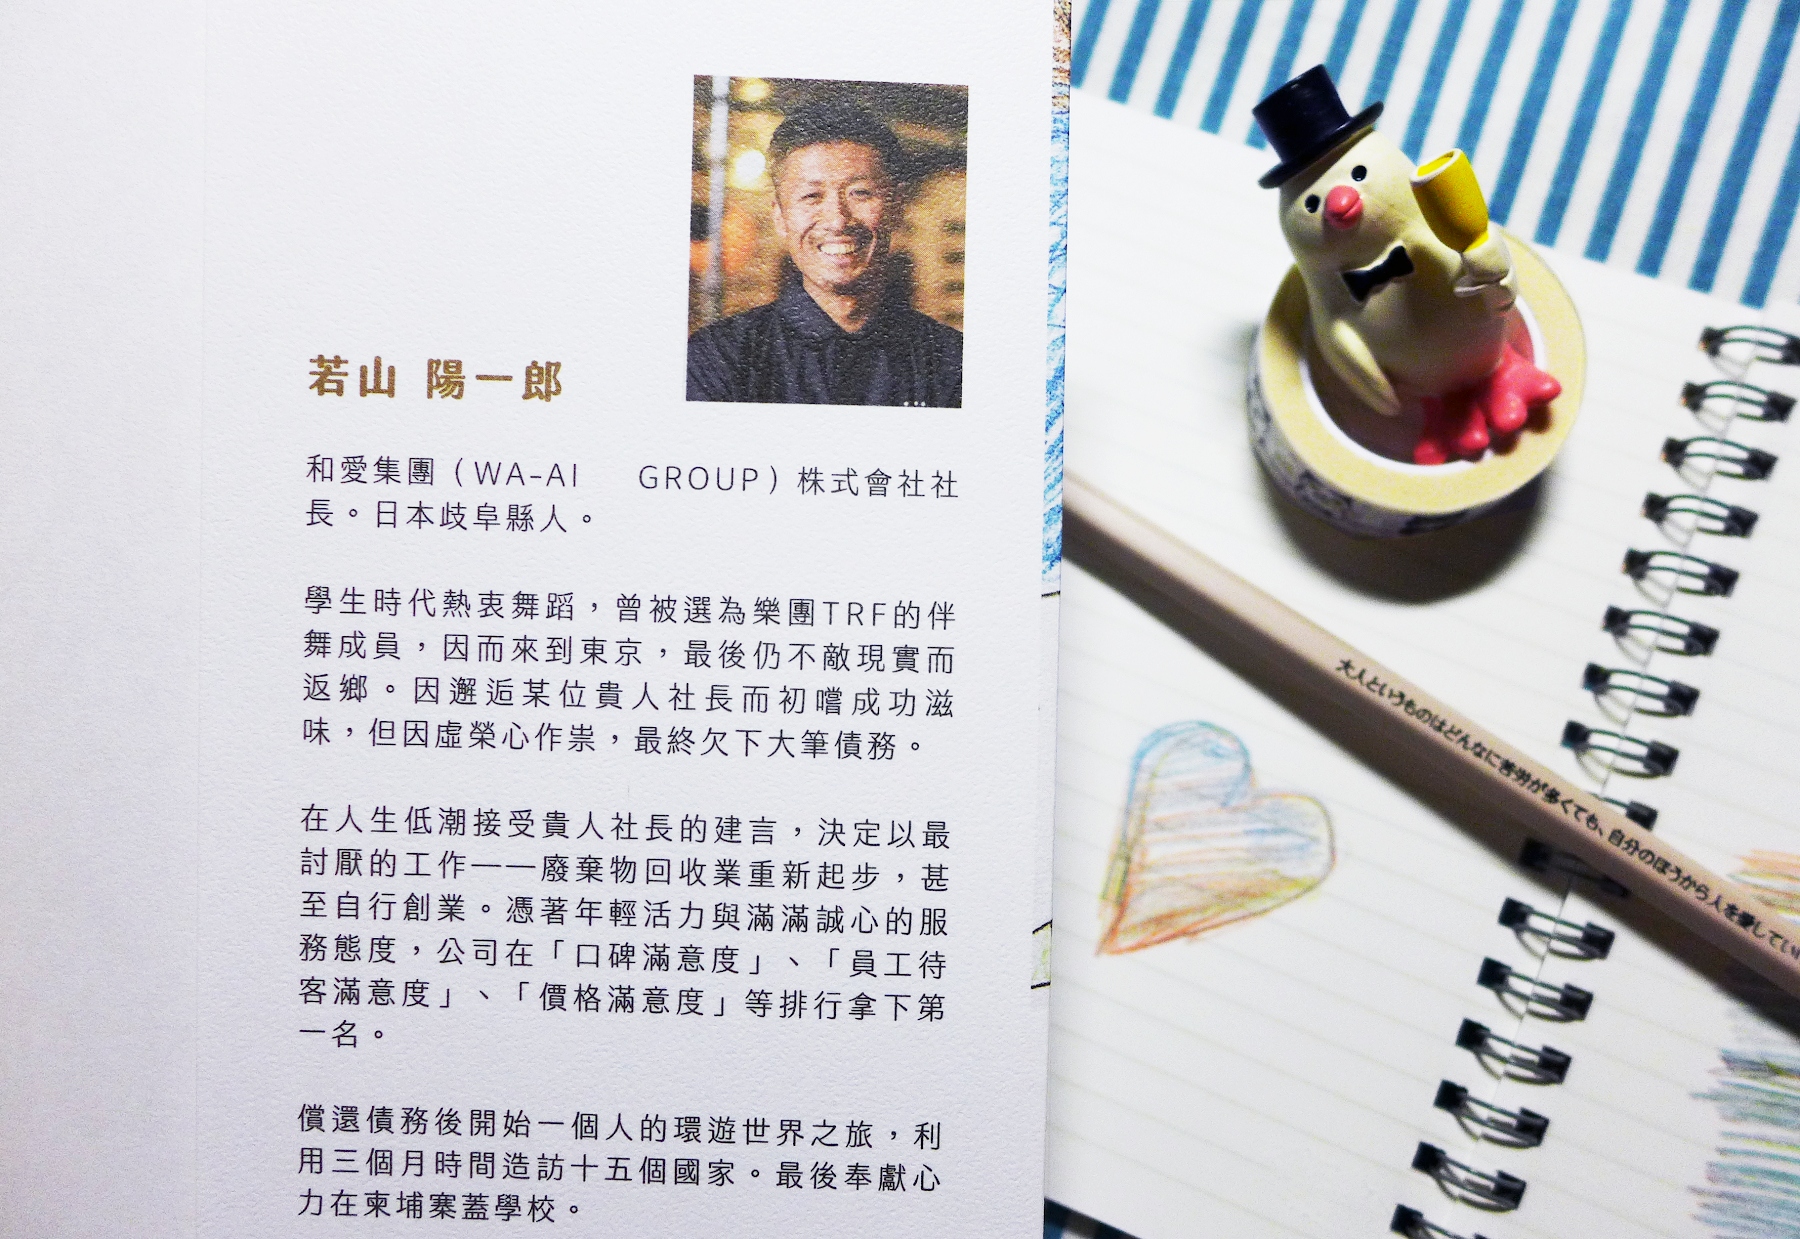 若山 陽一郎
和愛集團（WA-AI GROUP）株式會社社
長。日本歧阜縣人。
學生時代熱衷舞蹈，曾被選為樂團TRF的伴
舞成員，因而來到東京，最後仍不敵現實而
返鄉。因邂逅某位貴人社長而初嚐成功滋
味，但因虛榮心作祟，最終欠下大筆債務。
在人生低潮接受貴人社長的建言，決定以最
討厭的工作——廢棄物回收業重新起步，甚
至自行創業。憑著年輕活力與滿滿誠心的服
務態度，公司在「口碑滿意度」、「員工待
客滿意度」、「價格滿意度」等排行拿下第
一名。
償還債務後開始一個人的環遊世界之旅，利
用三個月時間造訪十五個國家。最後奉獻心
力在柬埔寨蓋學校。
大人というものはどんなに苦労が多くても、自分のほうから人を愛してい